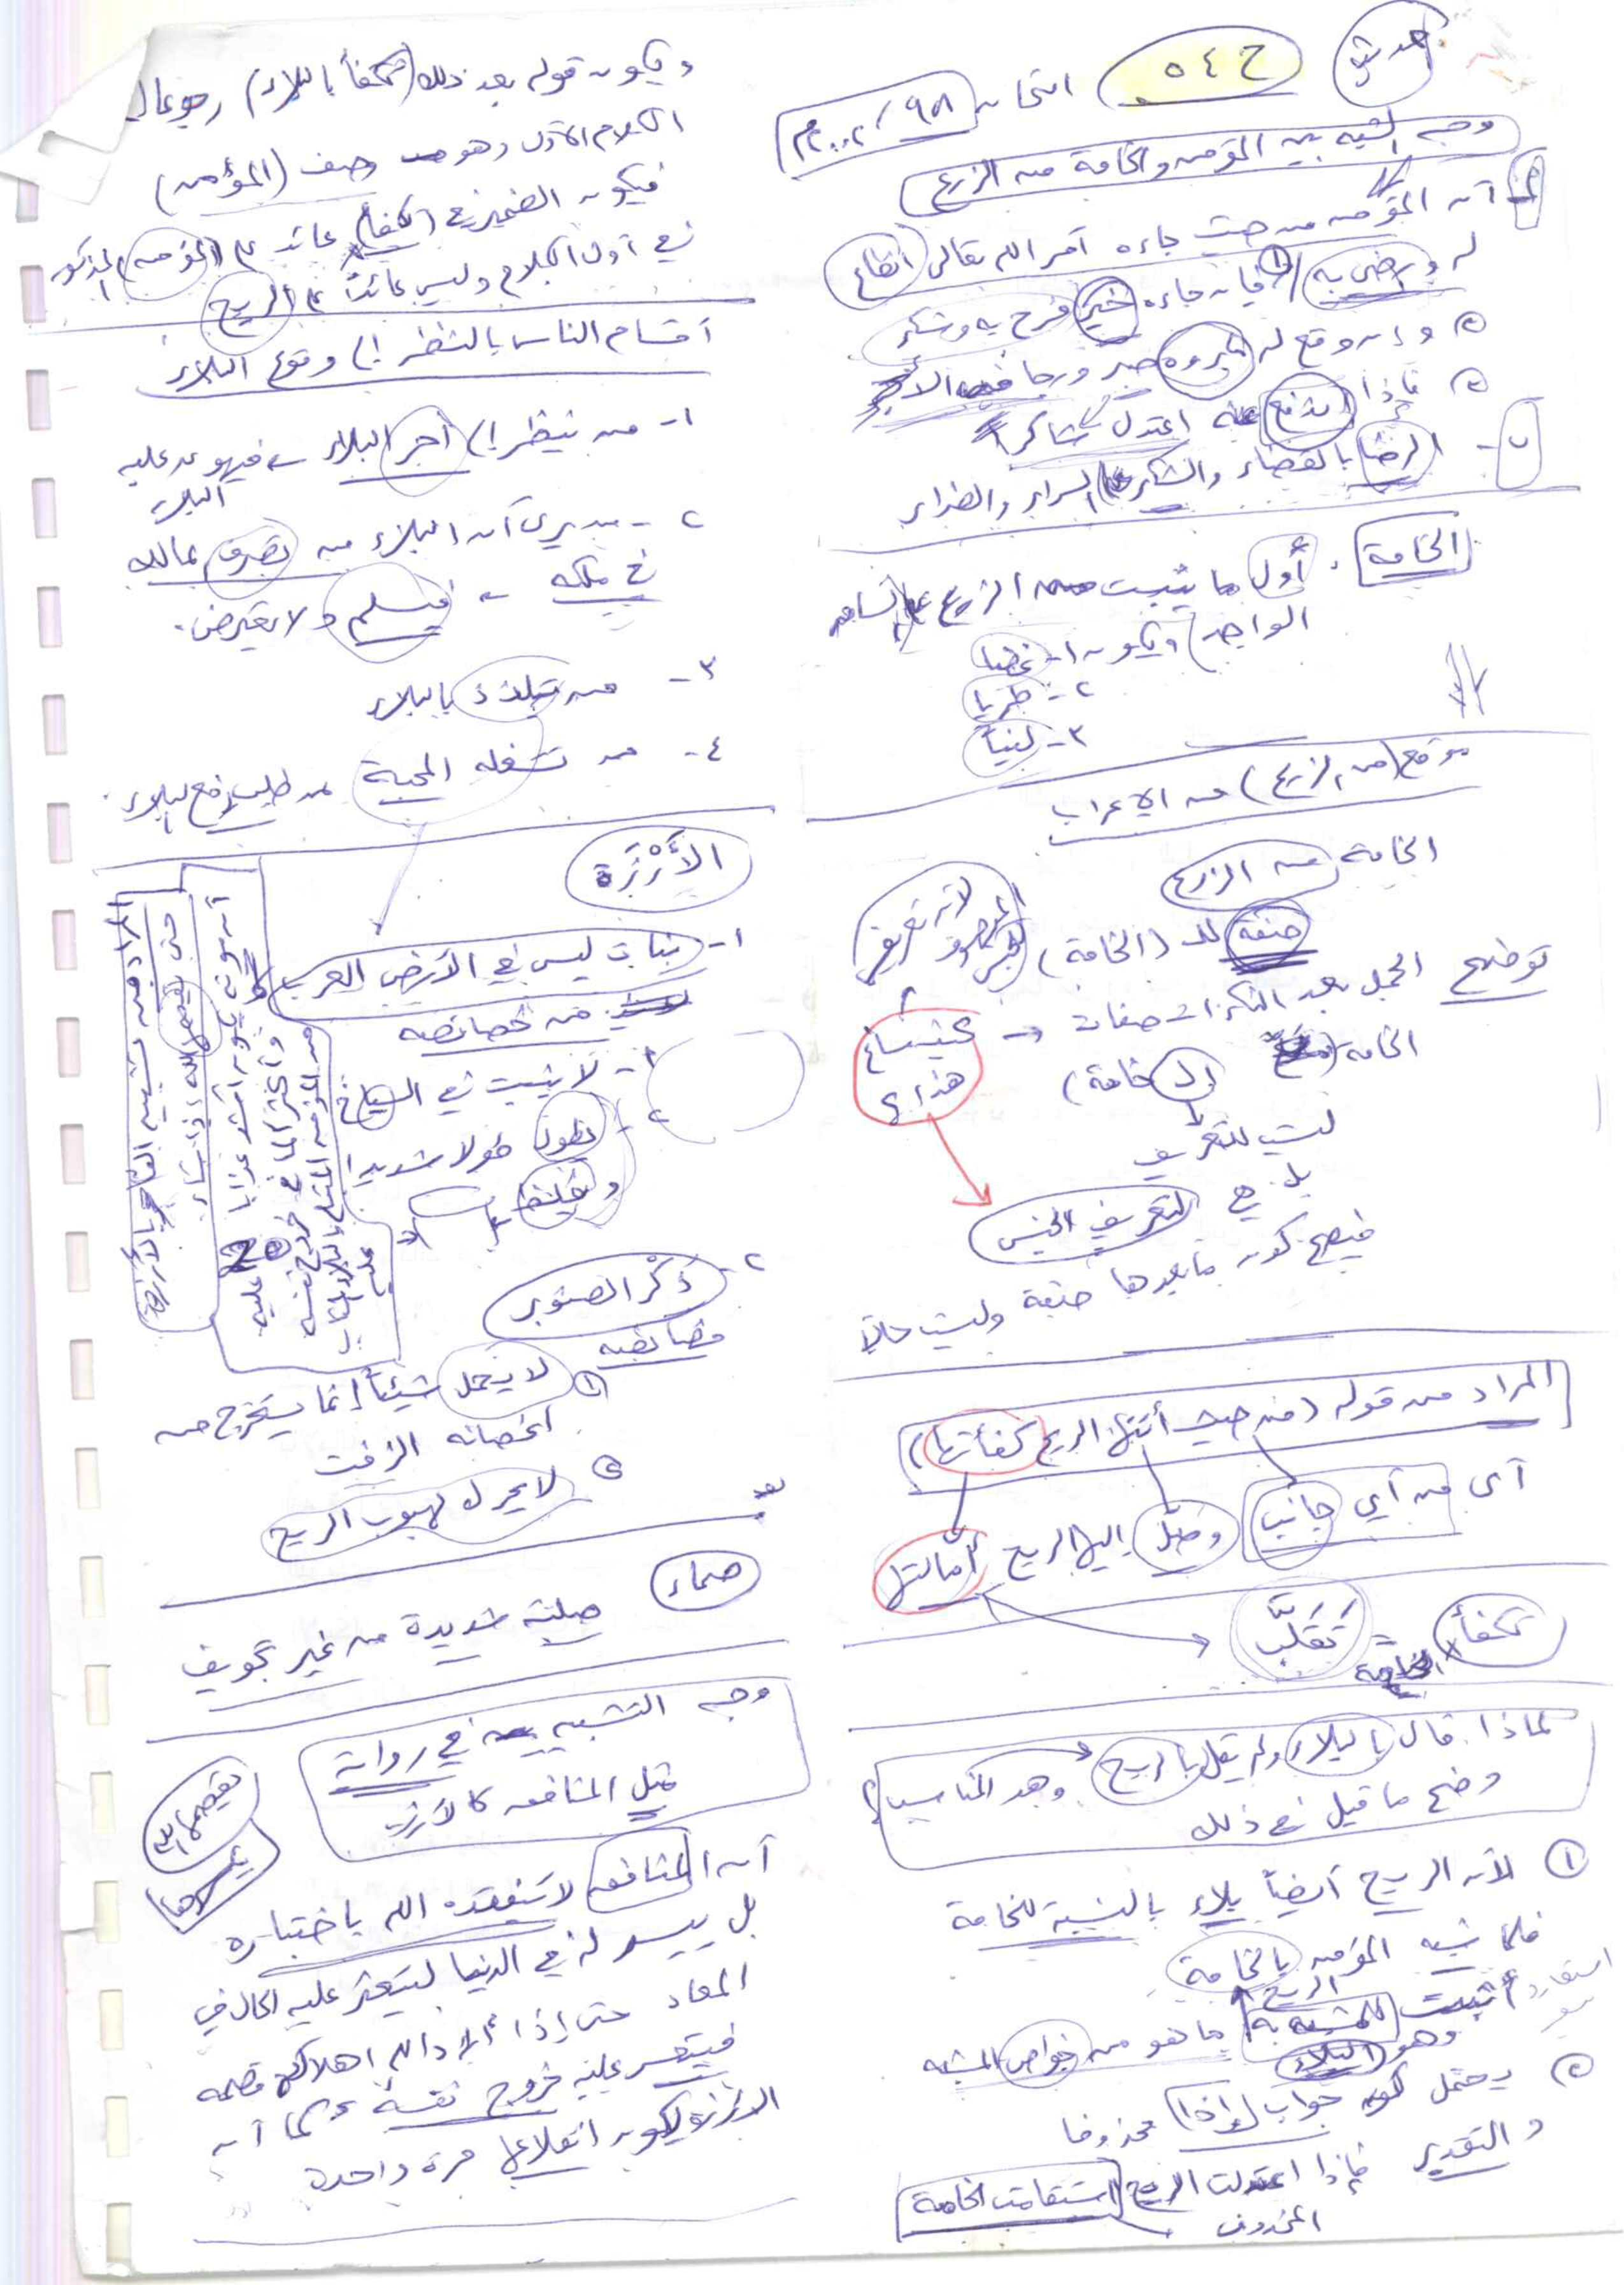 حديث
ح ٥٤٠ امتحان
وجه الشبه بين المؤمن والخامة من الزرع
أ- أن المؤمن من حيث جاءه أمر الله تعالى انطاع
له ورضي به ① فإن جاءه خير فرح به وشكر
② وإن وقع له مكروه صبر ورجا فيه الأجر
③ فإذا اندفع عنه اعتدل شاكراً
ب- الرضا بالقضاء والشكر على السراء والضراء
الخامة: أول ما ينبت من الزرع على الساق
الواحد ويكون ١- غضا
٢- طريا
٣- لينا
موقع (من الزرع) من الإعراب
الخامة من الزرع
صفة لـ (الخامة) لأنه تعريف
توضيح الجمل بعد النكرات صفات
الخامة (الـ خامة)
ليست للتعريف
بل هي لتعريف الجنس
فيصح كون ما بعدها صفة وليست حالاً
المراد من قوله (من حيث أتتها الريح كفأتها)
أي من أي جانب وصل إليها الريح أمالتها
تكفأ = تقلب
الخامة
لماذا قال بالبلاء ولم يقل بالريح وهو المناسب؟
وضح ما قيل في ذلك
① لأن الريح أيضاً بلاء بالنسبة للخامة
فلما شبه المؤمن بالخامة
أثبت للمشبه به ما هو من خواص المشبه
وهو البلاء
② يحتمل كون جواب إذا محذوفا
والتقدير فإذا اعتدلت الريح استقامت الخامة
المحذوف
ويكون قوله بعد ذلك (تكفأ بالبلاء) رجوعا إلى
الكلام الأول وهو وصف (المؤمن)
فيكون الضمير في (تكفأ) عائد على (المؤمن) المذكور
في أول الكلام وليس عائداً على الريح
أقسام الناس بالنظر إلى وقوع البلاء
١- من ينظر إلى أجر البلاء فيهون عليه
البلاء
٢- من يرى أن البلاء من تصرف المالك
في ملكه فيسلم ولا يعترض.
٣- من يتلذذ بالبلاء
٤- من تشغله المحبة عن طلب رفع البلاء.
الأَرْزَة
١- نبات ليس في الأرض العرب
من خصائصه
١- لا ينبت في السباخ
٢- يطول طولا شديدا
ويغلظ
المراد من تشبيه الفاجر بالأرزة
حتى يقصمها الله إذا شاء
أن موته يكون أشد عذابا عليه
وأكثر ألما في خروج نفسه
من المؤمن المبتلى بالبلاء المثاب
عليه
٢- ذكر الصنوبر
خصائصه
① لا يحمل شيئاً إنما يستخرج من
أغصانه الزفت
② لا يحرك لهبوب الريح
صماء
صلبة شديدة من غير تجويف
وجه التشبيه في رواية
مثل المنافق كالأرزة
يقصمها الله
يكسرها
أن المنافق لا يتفقده الله باختباره
بل ييسر له في الدنيا ليتعسر عليه الحال في
المعاد حتى إذا أراد الله إهلاكه قصمه
فيتعسر عليه خروج نفسه كما أن
الأرزة يكون انقلاعها مرة واحدة